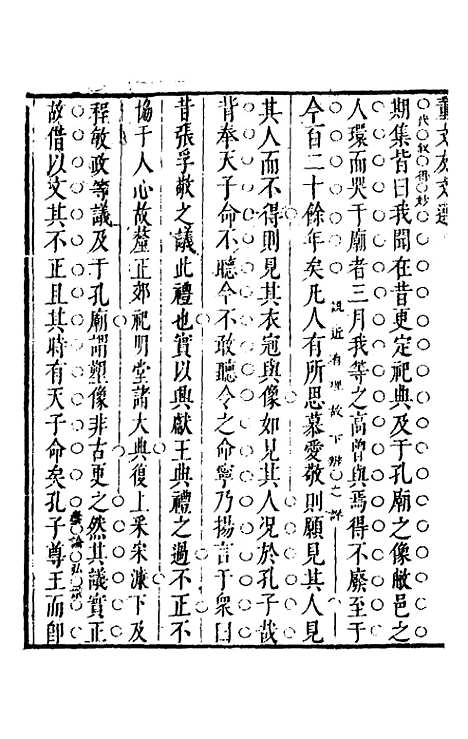 董文友文選
代叙得妙
期集皆曰我聞在昔更定祀典及于孔廟之像敝邑之
人環而哭于廟者三月我等之高曾與焉得不廢至于
今百二十餘年矣凡人有所思慕愛敬則願見其人見
說近有理故下辨之詳
其人而不得則見其衣冠與像如見其人况於孔子哉
背奉天子命不聽今不敢聽令之命寧乃揚言于衆曰
昔張孚敬之議此禮也實以興獻王典禮之過不正不
協于人心故釐正郊祀明堂諸大典復上采宋濂下及
程敏政等議及于孔廟謂塑像非古更之然其議實正
議論弘深
故借以文其不正且其時有天子命矣孔子尊王而卽